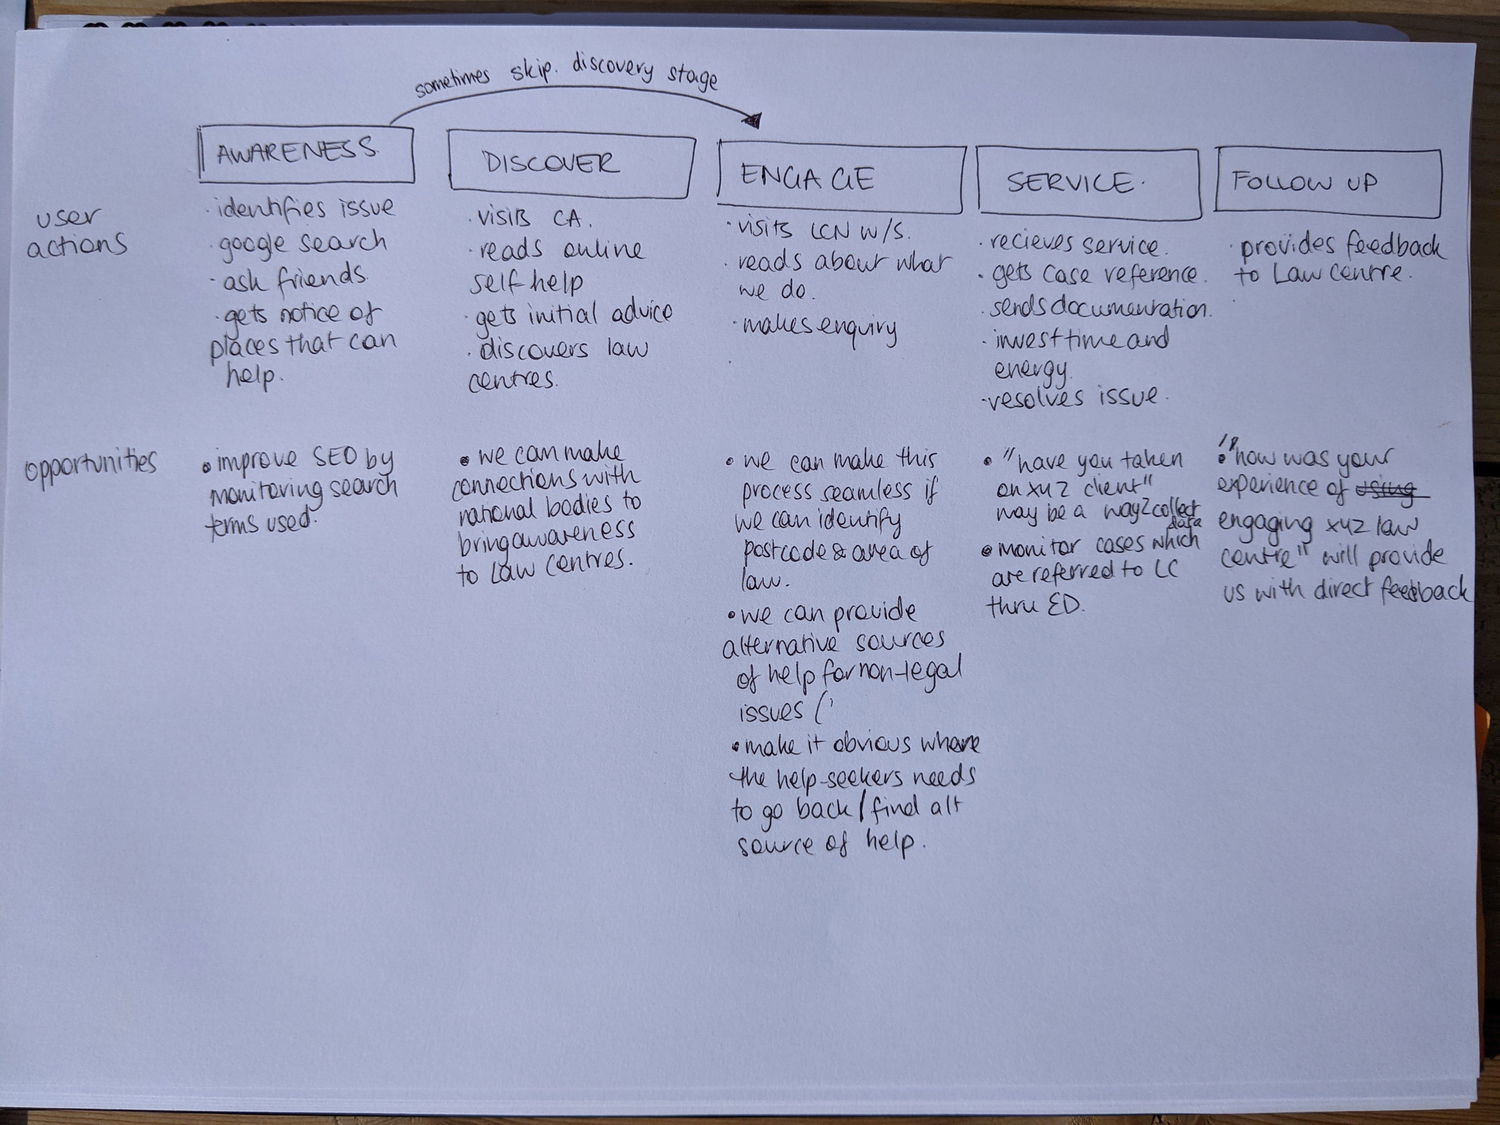 sometimes skip. discovery stage
AWARENESS.
DISCOVER
ENGAGE
SERVICE.
FOLLOW UP
user
actions
· identifies issue
· google search
· ask friends
· gets notice of
places that can
help.
· visits CA.
· reads online
self help
· gets initial advice
· discovers law
centres.
· visits LCN w/s.
· reads about what
we do.
· makes enquiry
·
· recieves service.
· gets case reference.
· sends documentation.
· invest time and
energy.
· resolves issue.
· provides feedback
to Law centre.
·
opportunities
• improve SEO by
monitoring search
terms used.
• we can make
connections with
national bodies to
bring awareness
to Law centres.
• we can make this
process seamless if
we can identify
postcode & area of
law.
• we can provide
alternative sources
of help for non-legal
issues (
• make it obvious where
the help-seekers needs
to go back / find alt
source of help.
• "have you taken
on xyz client"
may be a way 2 collect
data
• monitor cases which
are referred to LC
thru ED.
• "how was your
experience of using
engaging xyz law
centre" will provide
us with direct feedback